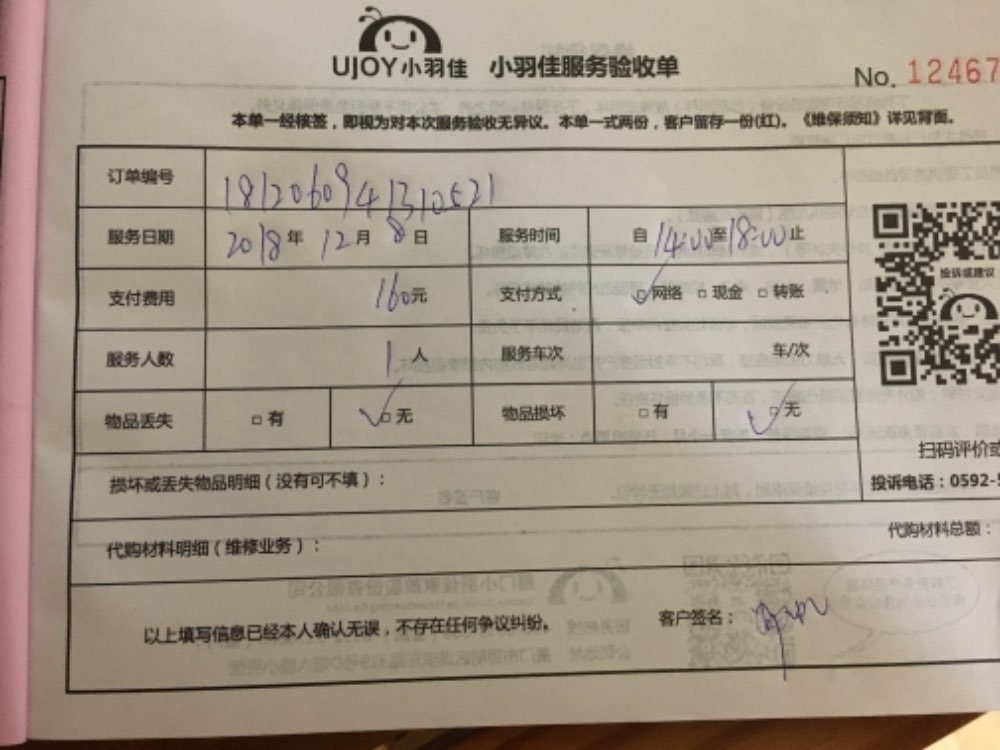 UJOY小羽佳 小羽佳服务验收单
No. 12467
本单一经核签，即视为对本次服务验收无异议。本单一式两份，客户留存一份(红)。《维保须知》详见背面。
订单编号 1812060941310521
服务日期 2018年 12月 8日 服务时间 自 14:00至18:00止
支付费用 160元 支付方式 ☑网络 □现金 □转账
投诉或建议
服务人数 1人 服务车次 车/次
物品丢失 □有 ☑无 物品损坏 □有 ☑无
扫码评价或
损坏或丢失物品明细（没有可不填）：
投诉电话：0592-5
代购材料明细（维修业务）： 代购材料总额：
以上填写信息已经本人确认无误，不存在任何争议纠纷。 客户签名：